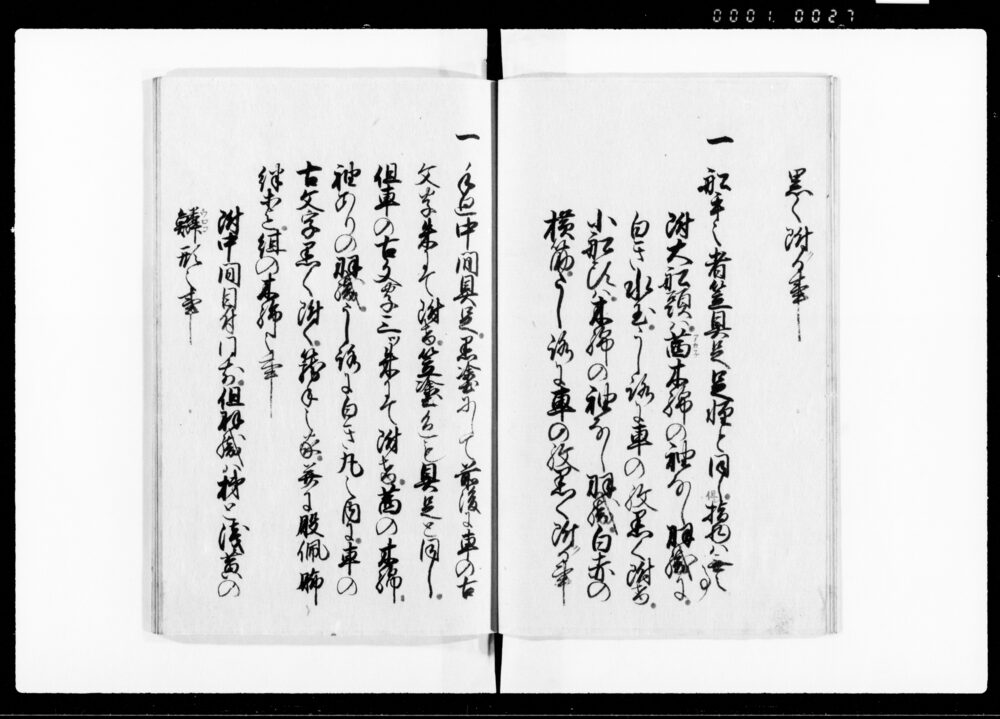 0001.0027
黒く附る事
一
船手之者笠具足足軽と同し但指物ハ無之
附大船頭ハ茜木綿の袖なし羽織に
アカネ
白き水玉うし路に車の紋黒く附る
小船頭ハ木綿の袖なし羽織白赤の
横筋うし路に車の紋黒く附る事
一
手廻中間具足黒塗ニして前後に車の古
文字朱ニて附る笠塗色も具足と同し
但車の古文字三ツ朱ニて附る茜の木綿
袖ありの羽織うし路に白き丸之内に車の
古文字黒く附く
股佩
紺の木綿之事
附中間目付同前但羽織ハ柿と浅黄の
鱗形之事
ウロコ